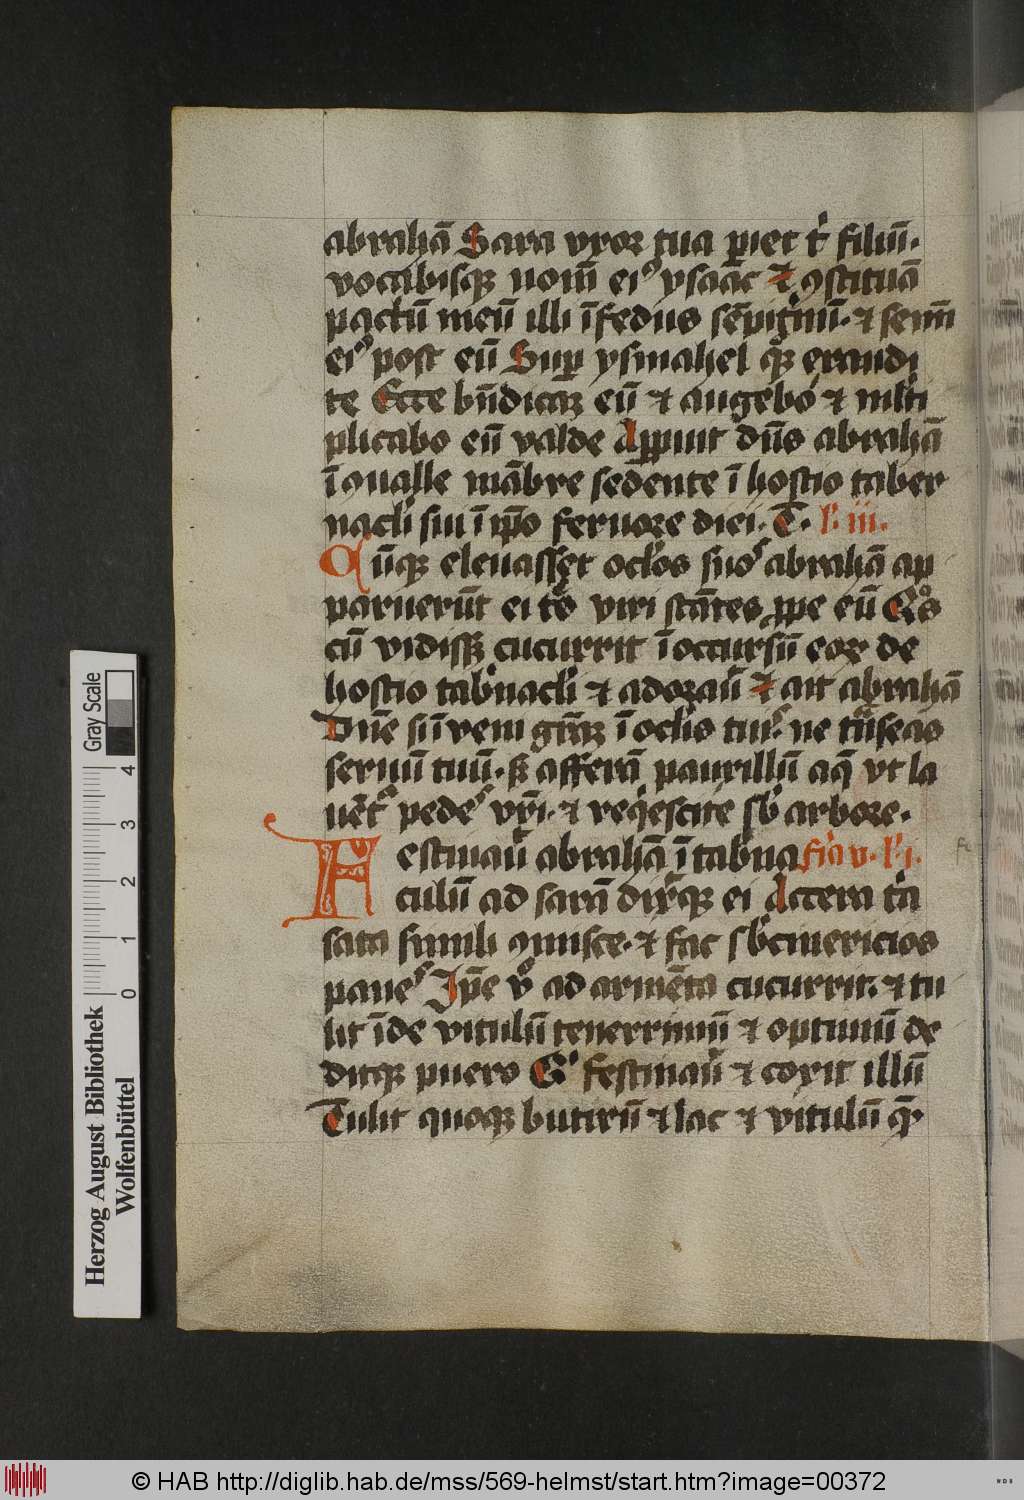 abrahā Sara vxor tua pariet t' filiū.
vocabisqȝ nom̄ eiꝰ ysaac et ꝯstituā
pactū meū illi ī fedus sēpit'nū. et semī
eiꝰ post eū Suꝑ ysmahel qͦqȝ exaudi
te Ecce bn̄dicaȝ eū et augebo et mlti
plicabo eū valde Aꝑꝑuit dn̄s abrahā
ī ꝯualle mābre sedente ī hostio taber
nacli sui ī ip̄o feruore diei. T. l' iii.
Cūqȝ eleuasset oclos suos abrahā ap
paruerūt ei tēs viri stātes ꝓpe eū Qͦs
cū vidissȝ cucurrit ī occursū eoꝝ de
hostio tab'nacli et adorau' et ait abrahā
Dn̄e si īveni grāȝ ī oclis tuis ne trāseas
seruū tuū. sȝ afferā pauxillū aq̄ vt la
uēt' pedes vr̄i. et reqͥescite sb' arbore.
Festinau' abrahā ī tab'na fi'a v. l' i.
culū ad sarā dixitqȝ ei Accera tͥa
sata simili ꝯmisce. et fac sb'cinericios
panes Ip̄e vͦ ad armēta cucurrit. et tu
lit īde vitulū tenerrimū et optimū de
ditqȝ puero Qͥ festinau' et coxit illū
Tulit quoqȝ butirū et lac et vitulū quē
Herzog August Bibliothek
Wolfenbüttel
Gray Scale
0 1 2 3 4
© HAB http://diglib.hab.de/mss/569-helmst/start.htm?image=00372